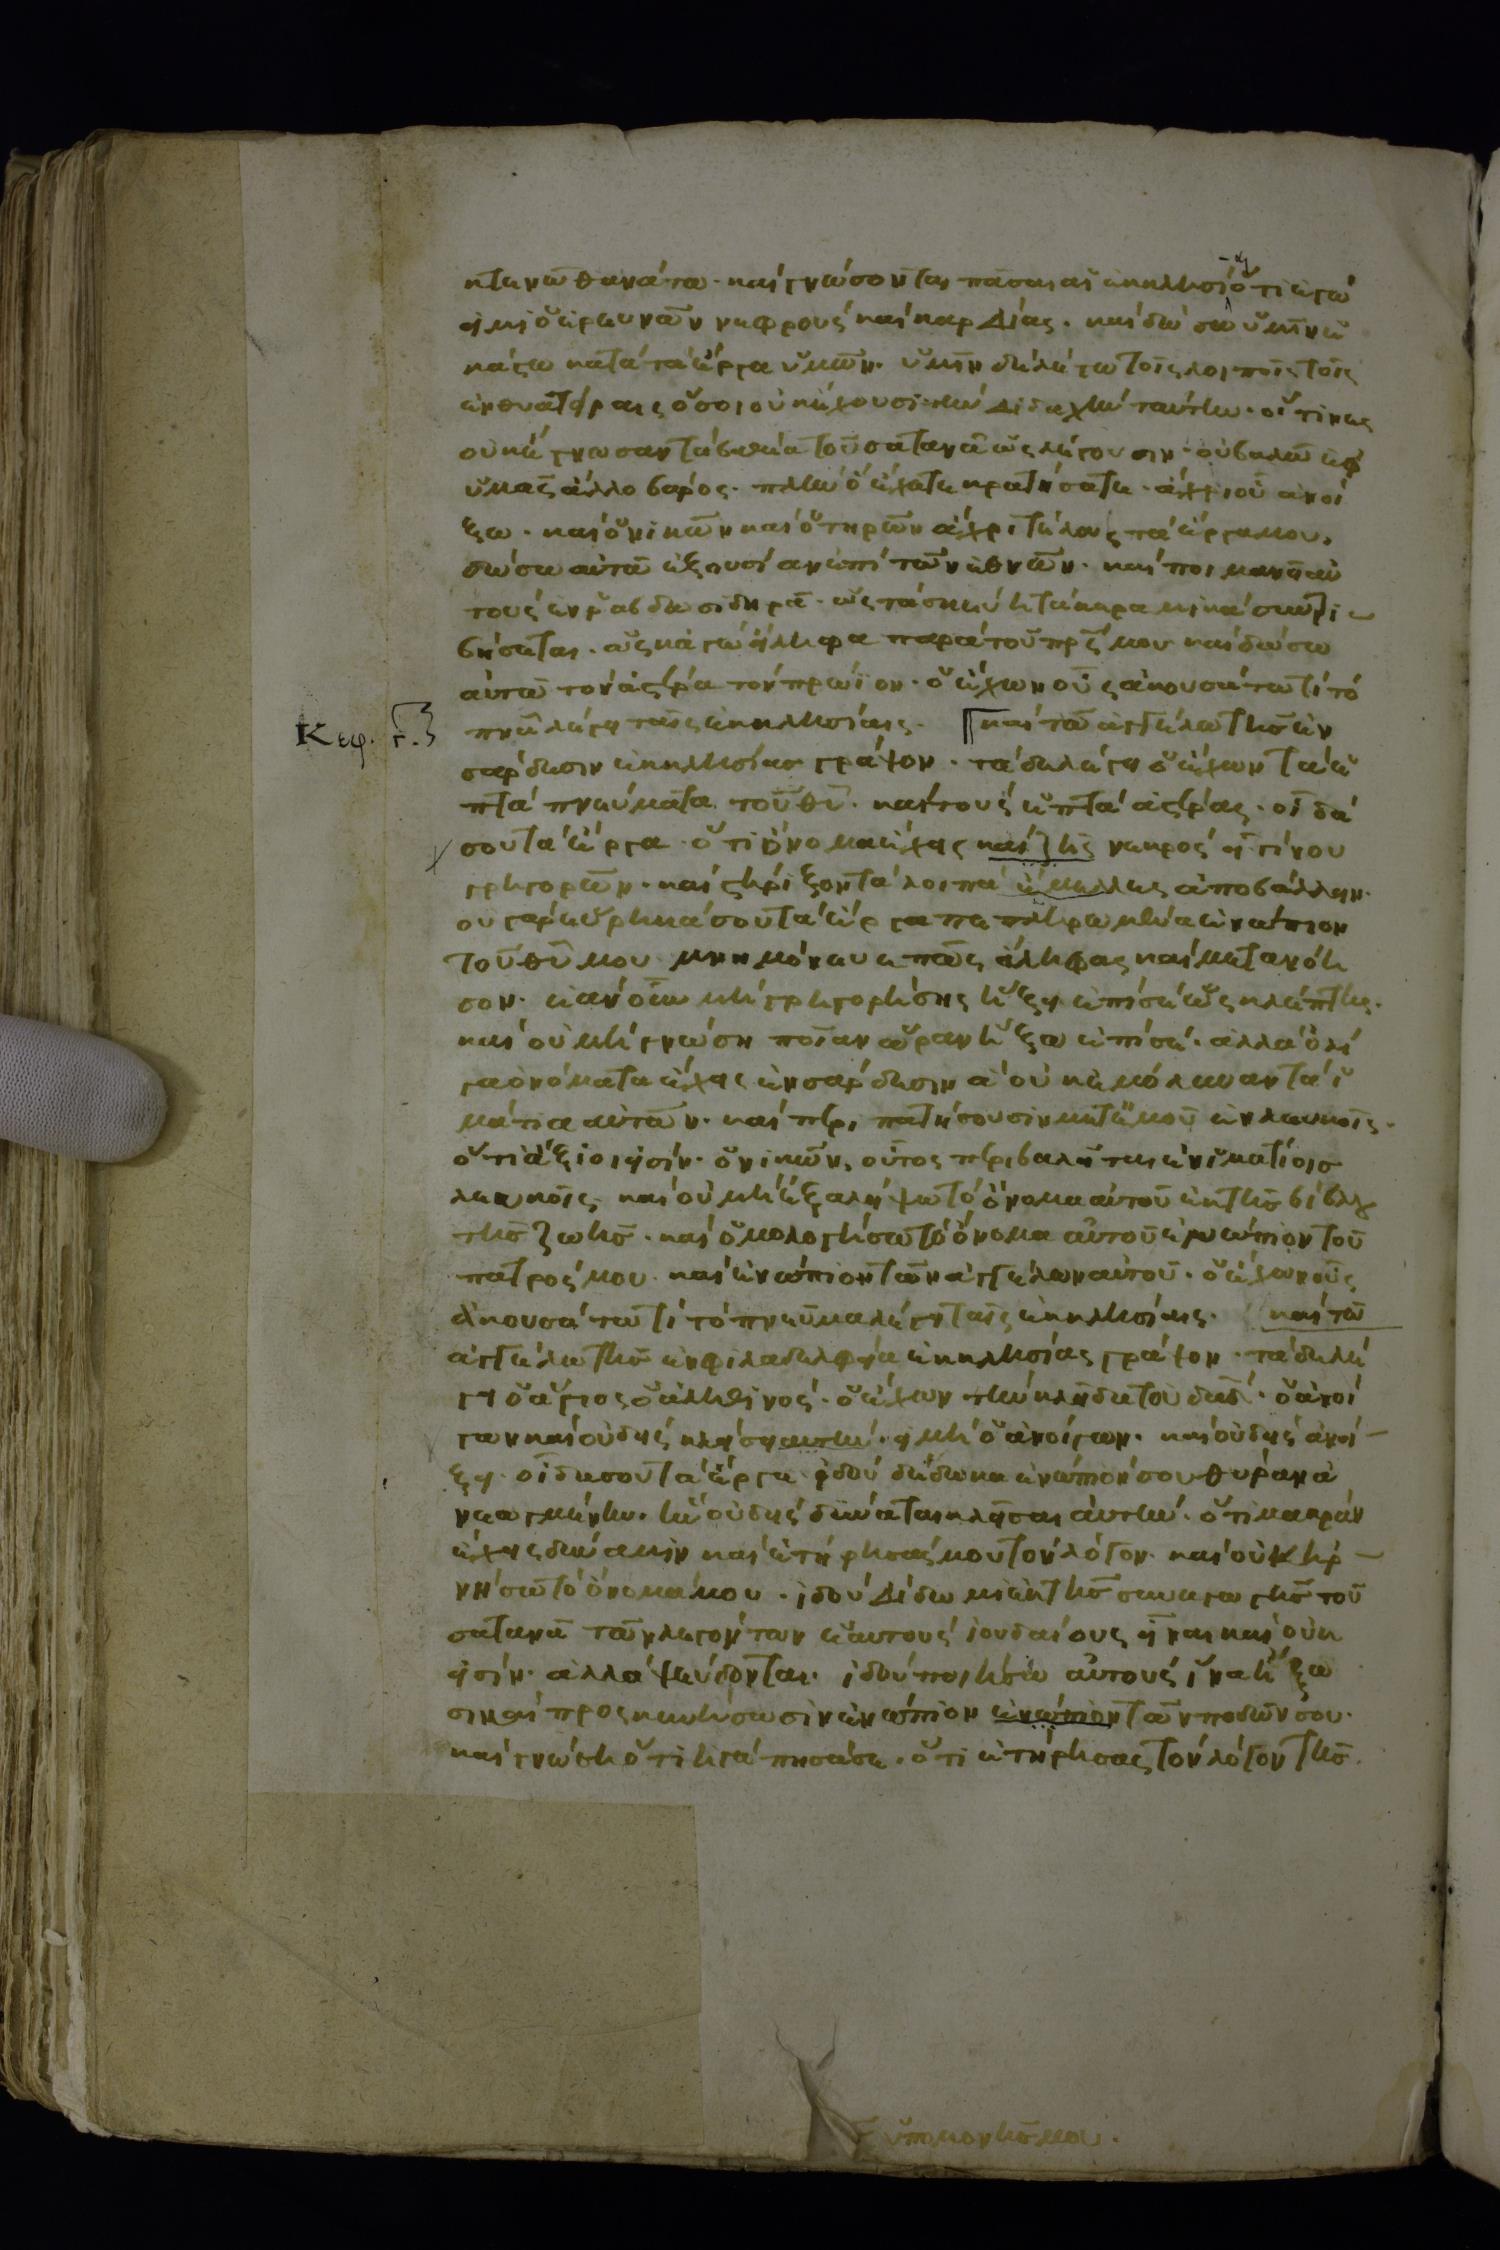 κτενῶ θανάτω· καὶ γνώσονται πᾶσαι αἱ ἐκκλησίαι ὅτι ἐγώ
εἰμι ὁ ἐρευνῶν νεφροὺς καὶ καρδίας· καὶ δώσω ὑμῖν ἑ
κάστω κατὰ τὰ ἔργα ὑμῶν· ὑμῖν δὲ λέγω τοῖς λοιποῖς τοῖς
ἐν θυατείραις ὅσοι οὐκ ἔχουσι τὴν διδαχὴν ταύτην· οἵτινες
οὐκ ἔγνωσαν τὰ βαθέα τοῦ σατανᾶ ὡς λέγουσιν· οὐ βαλῶ ἐφ
ὑμᾶς ἄλλο βάρος· πλὴν ὃ ἔχετε κρατήσατε· ἄχρι οὗ ἀνοί
ξω· καὶ ὁ νικῶν καὶ ὁ τηρῶν ἄχρι τέλους τὰ ἔργα μου,
δώσω αὐτῶ ἐξουσίαν ἐπὶ τῶν ἐθνῶν· καὶ ποιμανεῖ αὐ
τοὺς ἐν ῥάβδω σιδηρᾶ· ὡς τὰ σκεύη τὰ κεραμικὰ συντρι
βήσεται· ὡς κἀγὼ εἴληφα παρὰ τοῦ πρς μου καὶ δώσω
αὐτῶ τὸν ἀστέρα τὸν πρωϊον· ὁ ἔχων οὖς ἀκουσάτω τί τὸ
πνα λέγει ταῖς ἐκκλησίαις· καὶ τῶ ἀγγέλω τῆς ἐν
Κεφ. γ.
σάρδεσιν ἐκκλησίας γράψον· τάδε λέγει ὁ ἔχων τὰ ἑ
πτὰ πνεύματα τοῦ θυ· καὶ τοὺς ἑπτὰ ἀστέρας· οἶδά
σου τὰ ἔργα ὅτι ὄνομα ἔχεις καὶ ζῆς νεκρὸς εἶ γίνου
γρηγορῶν· καὶ στήριξον τὰ λοιπὰ ἔμελλες ἀποβάλλειν·
οὐ γὰρ εὕρηκά σου τὰ ἔργα πεπληρωμένα ἐνώπιον
τοῦ θυ μου μνημόνευε πῶς εἴληφας καὶ μετανόη
σον· ἐὰν οὖν μὴ γρηγορήσης ἥξω ἐπὶ σὲ ὡς κλέπτης·
καὶ οὐ μὴ γνώση ποίαν ὥραν ἥξω ἐπὶ σέ· ἀλλὰ ὀλί
γα ὀνόματα ἔχεις ἐν σάρδεσιν ἃ οὐκ ἐμόλυναν τὰ ἱ
μάτια αὐτῶν· καὶ περιπατήσουσιν μετ' ἐμοῦ ἐν λευκοῖς·
ὅτι ἄξιοι εἰσίν· ὁ νικῶν, οὗτος περιβαλεῖται ἐν ἱματίοισ
λευκοῖς· καὶ οὐ μὴ ἐξαλείψω τὸ ὄνομα αὐτοῦ ἐκ τῆς βίβλου
τῆς ζωῆς· καὶ ὁμολογήσω τὸ ὄνομα αὐτοῦ ἐνώπιον τοῦ
πατρός μου· καὶ ἐνώπιον τῶν ἀγγέλων αὐτοῦ· ὁ ἔχων οὖς
ἀκουσάτω τί τὸ πνεῦμα λέγει ταῖς ἐκκλησίαις· καὶ τῶ
ἀγγέλω τῆς ἐν φιλαδελφεία ἐκκλησίας γράψον· τάδε λέ
γει ὁ ἅγιος ὁ ἀληθινός· ὁ ἔχων τὴν κλεῖδα τοῦ δαδ· ὁ ἀνοί
γων καὶ οὐδεὶς κλείσει αὐτὴν· εἰ μὴ ὁ ἀνοίγων· καὶ οὐδεὶς ἀνοί
ξει· οἶδά σου τὰ ἔργα ἰδοὺ δέδωκα ἐνώπιόν σου θύραν ἀ
νεωγμένην· ἣν οὐδεὶς δύναται κλεῖσαι αὐτήν· ὅτι μακρὰν
ἔχεις δύναμιν καὶ ἐτήρησάς μου τὸν λόγον· καὶ οὐκ ἠρ
νήσω τὸ ὄνομά μου· ἰδοὺ δίδωμι ἐκ τῆς συναγωγῆς τοῦ
σατανᾶ τῶν λεγόντων ἑαυτοὺς ἰουδαίους εἶναι καὶ οὐκ
εἰσίν· ἀλλὰ ψεύδονται· ἰδοὺ ποιήσω αὐτοὺς ἵνα ἥξω
σι καὶ προσκυνήσωσιν ἐνώπιον ἐνώπιον τῶν ποδῶν σου·
καὶ γνώση ὅτι ἠγάπησά σε· ὅτι ἐτήρησας τὸν λόγον τῆς
ὑπομονῆς μου·